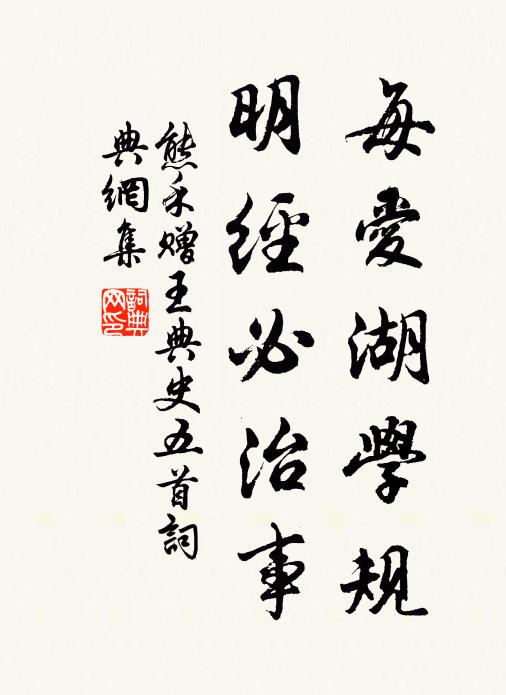 每愛湖學規
明經必治事
熊禾贈王典史五首詞
典網集
詞典網印